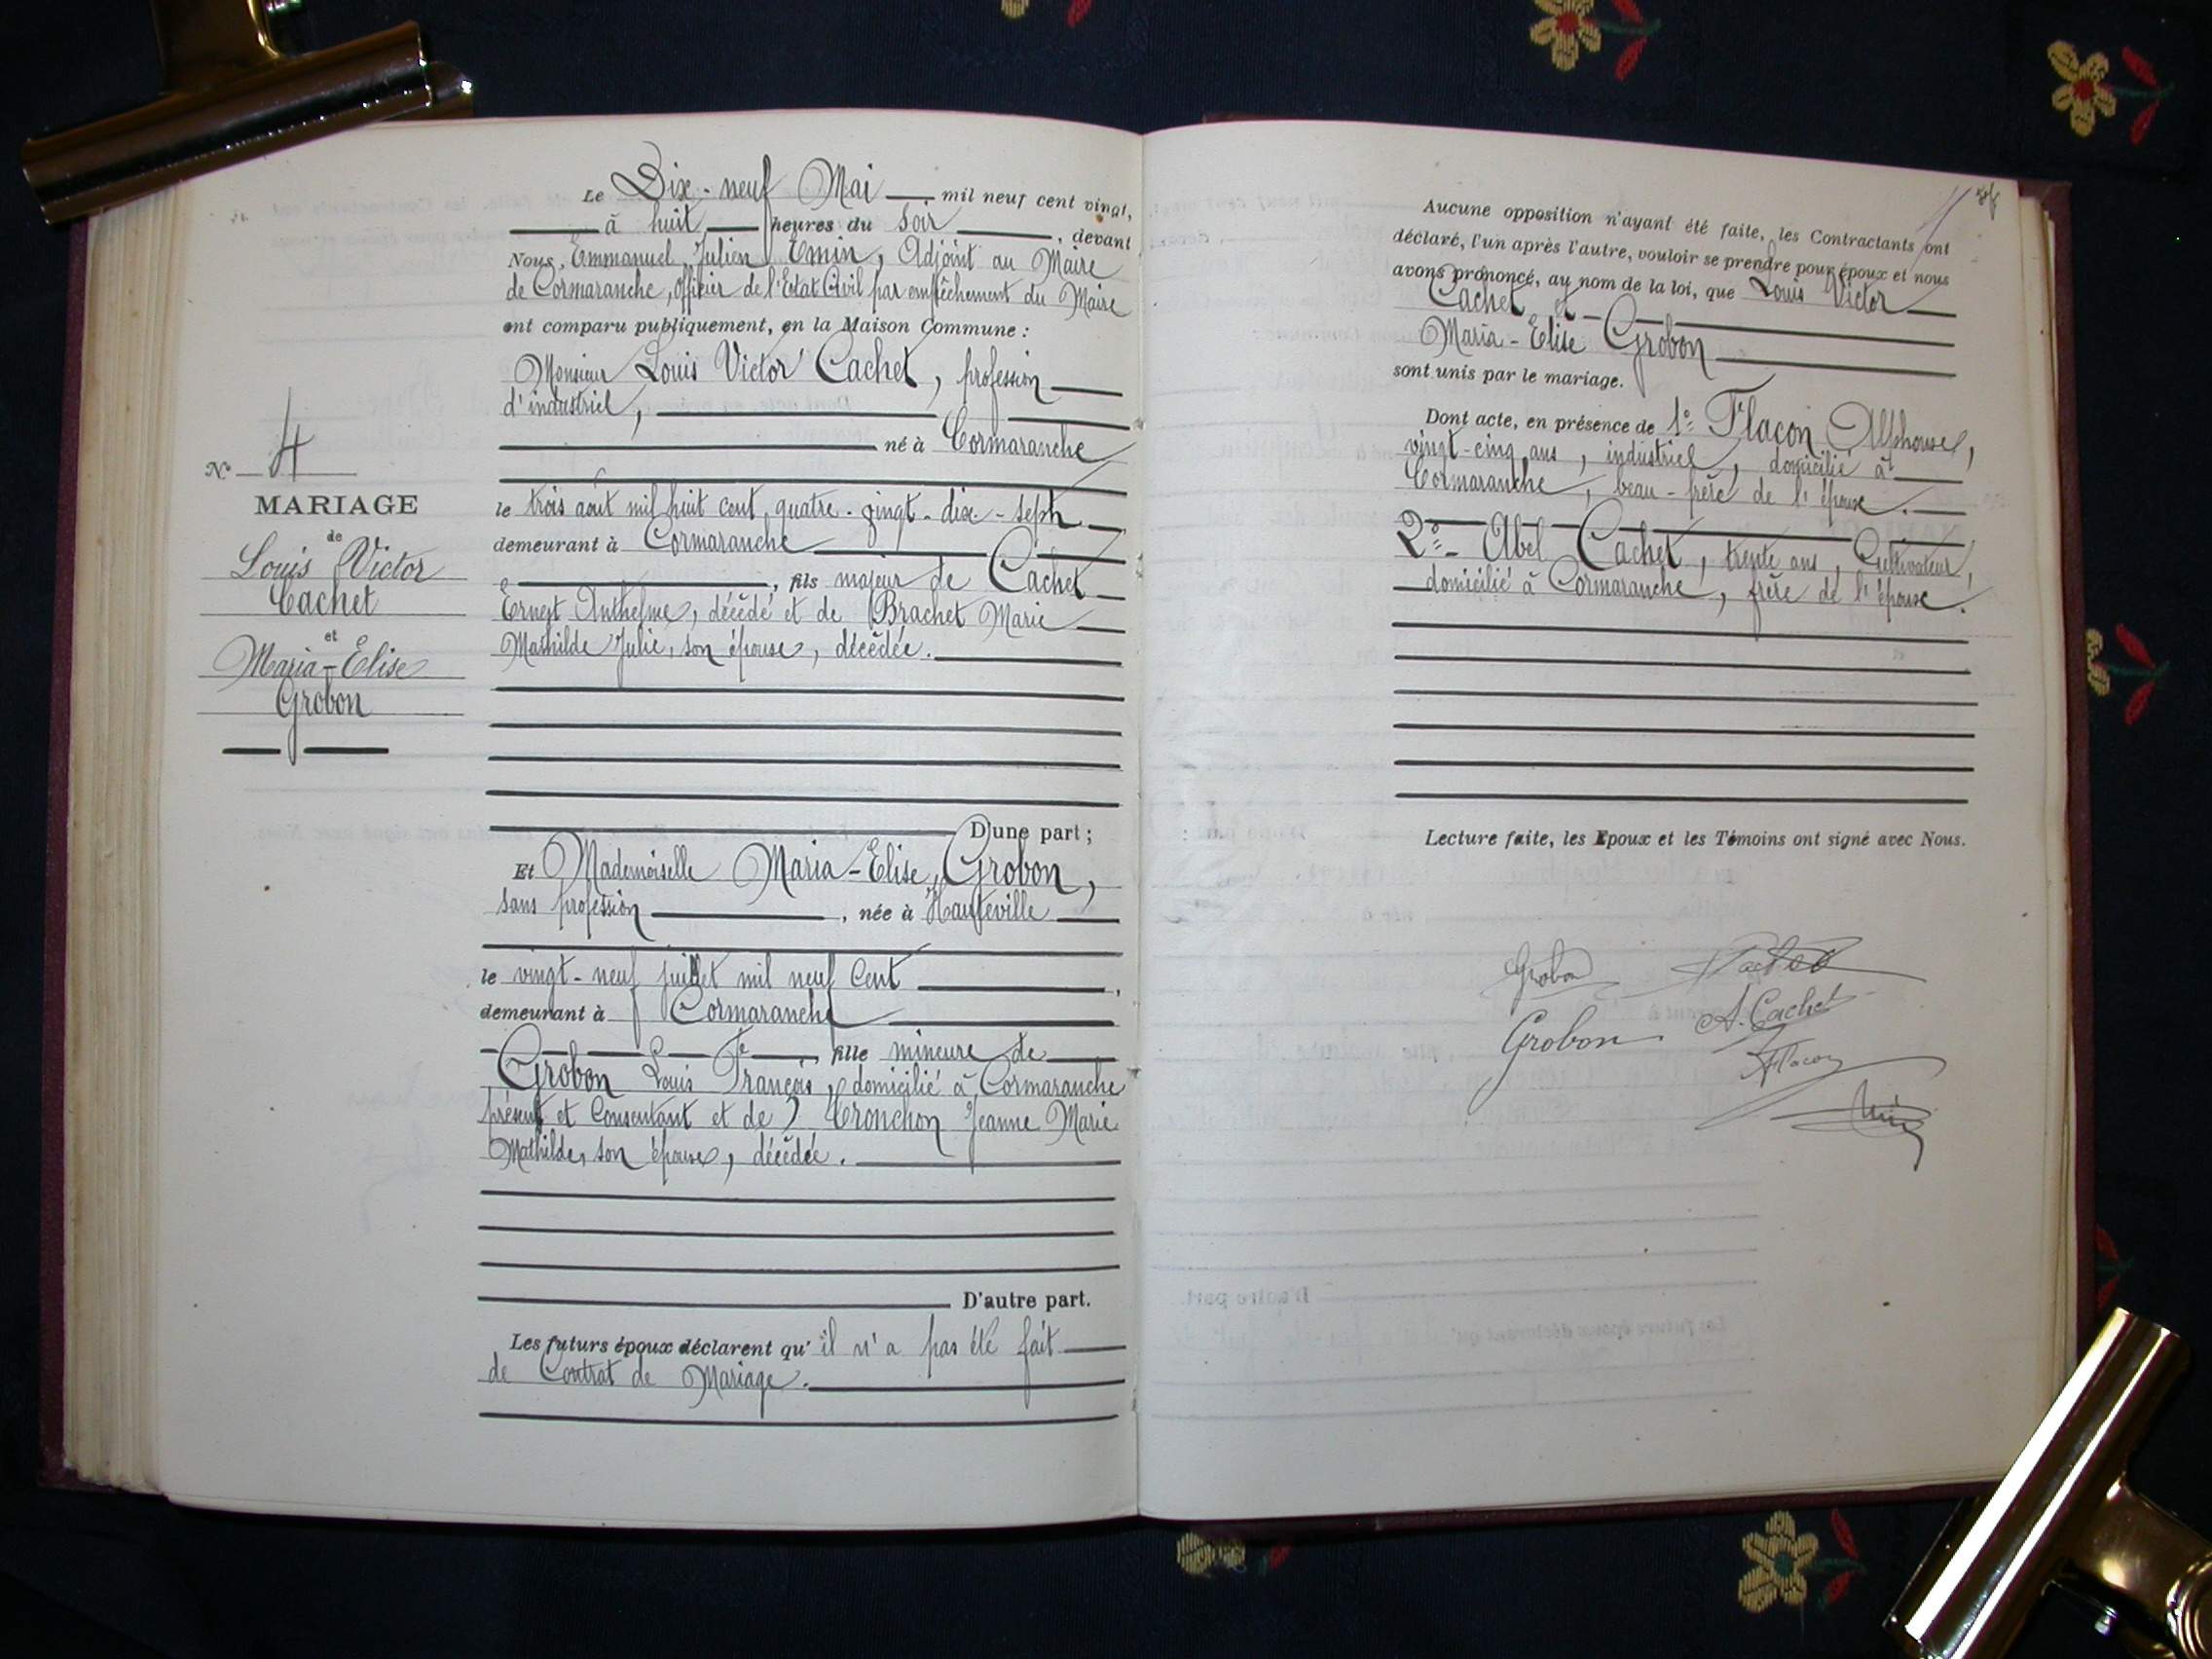 Le Dix-neuf Mai mil neuf cent vingt,
à huit heures du soir, devant
Nous, Emmanuel Julien Emin, Adjoint au Maire
de Cormaranche, officier de l'Etat Civil par empêchement du Maire
ont comparu publiquement, en la Maison Commune :
Monsieur Louis Victor Cachet, profession
d'industriel,
né à Cormaranche
le trois août mil huit cent quatre-vingt-dix-sept
demeurant à Cormaranche
, fils majeur de Cachet
Ernest Anthelme, décédé et de Brachet Marie
Mathilde Julie, son épouse, décédée.
D'une part ;
Et Mademoiselle Maria-Elise Grobon,
sans profession, née à Hauteville
le vingt-neuf juillet mil neuf cent,
demeurant à Cormaranche
, fille mineure de
Grobon Louis François, domicilié à Cormaranche
présent et consentant et de Tronchon Jeanne Marie
Mathilde, son épouse, décédée.
D'autre part.
Les futurs époux déclarent qu'il n'a pas été fait
de Contrat de Mariage.
N° 4
MARIAGE
de
Louis Victor
Cachet
et
Maria-Elise
Grobon
Aucune opposition n'ayant été faite, les Contractants ont
déclaré, l'un après l'autre, vouloir se prendre pour époux et nous
avons prononcé, au nom de la loi, que Louis Victor
Cachet et
Maria-Elise Grobon
sont unis par le mariage.
Dont acte, en présence de 1° Flacon Alphonse,
vingt-cinq ans, industriel, domicilié à
Cormaranche, beau-frère de l'épouse.
2° - Abel Cachet, trente ans, Cultivateur,
domicilié à Cormaranche, frère de l'épouse.
Lecture faite, les Epoux et les Témoins ont signé avec Nous.
Grobon
A. Cachet
Grobon
Flacon